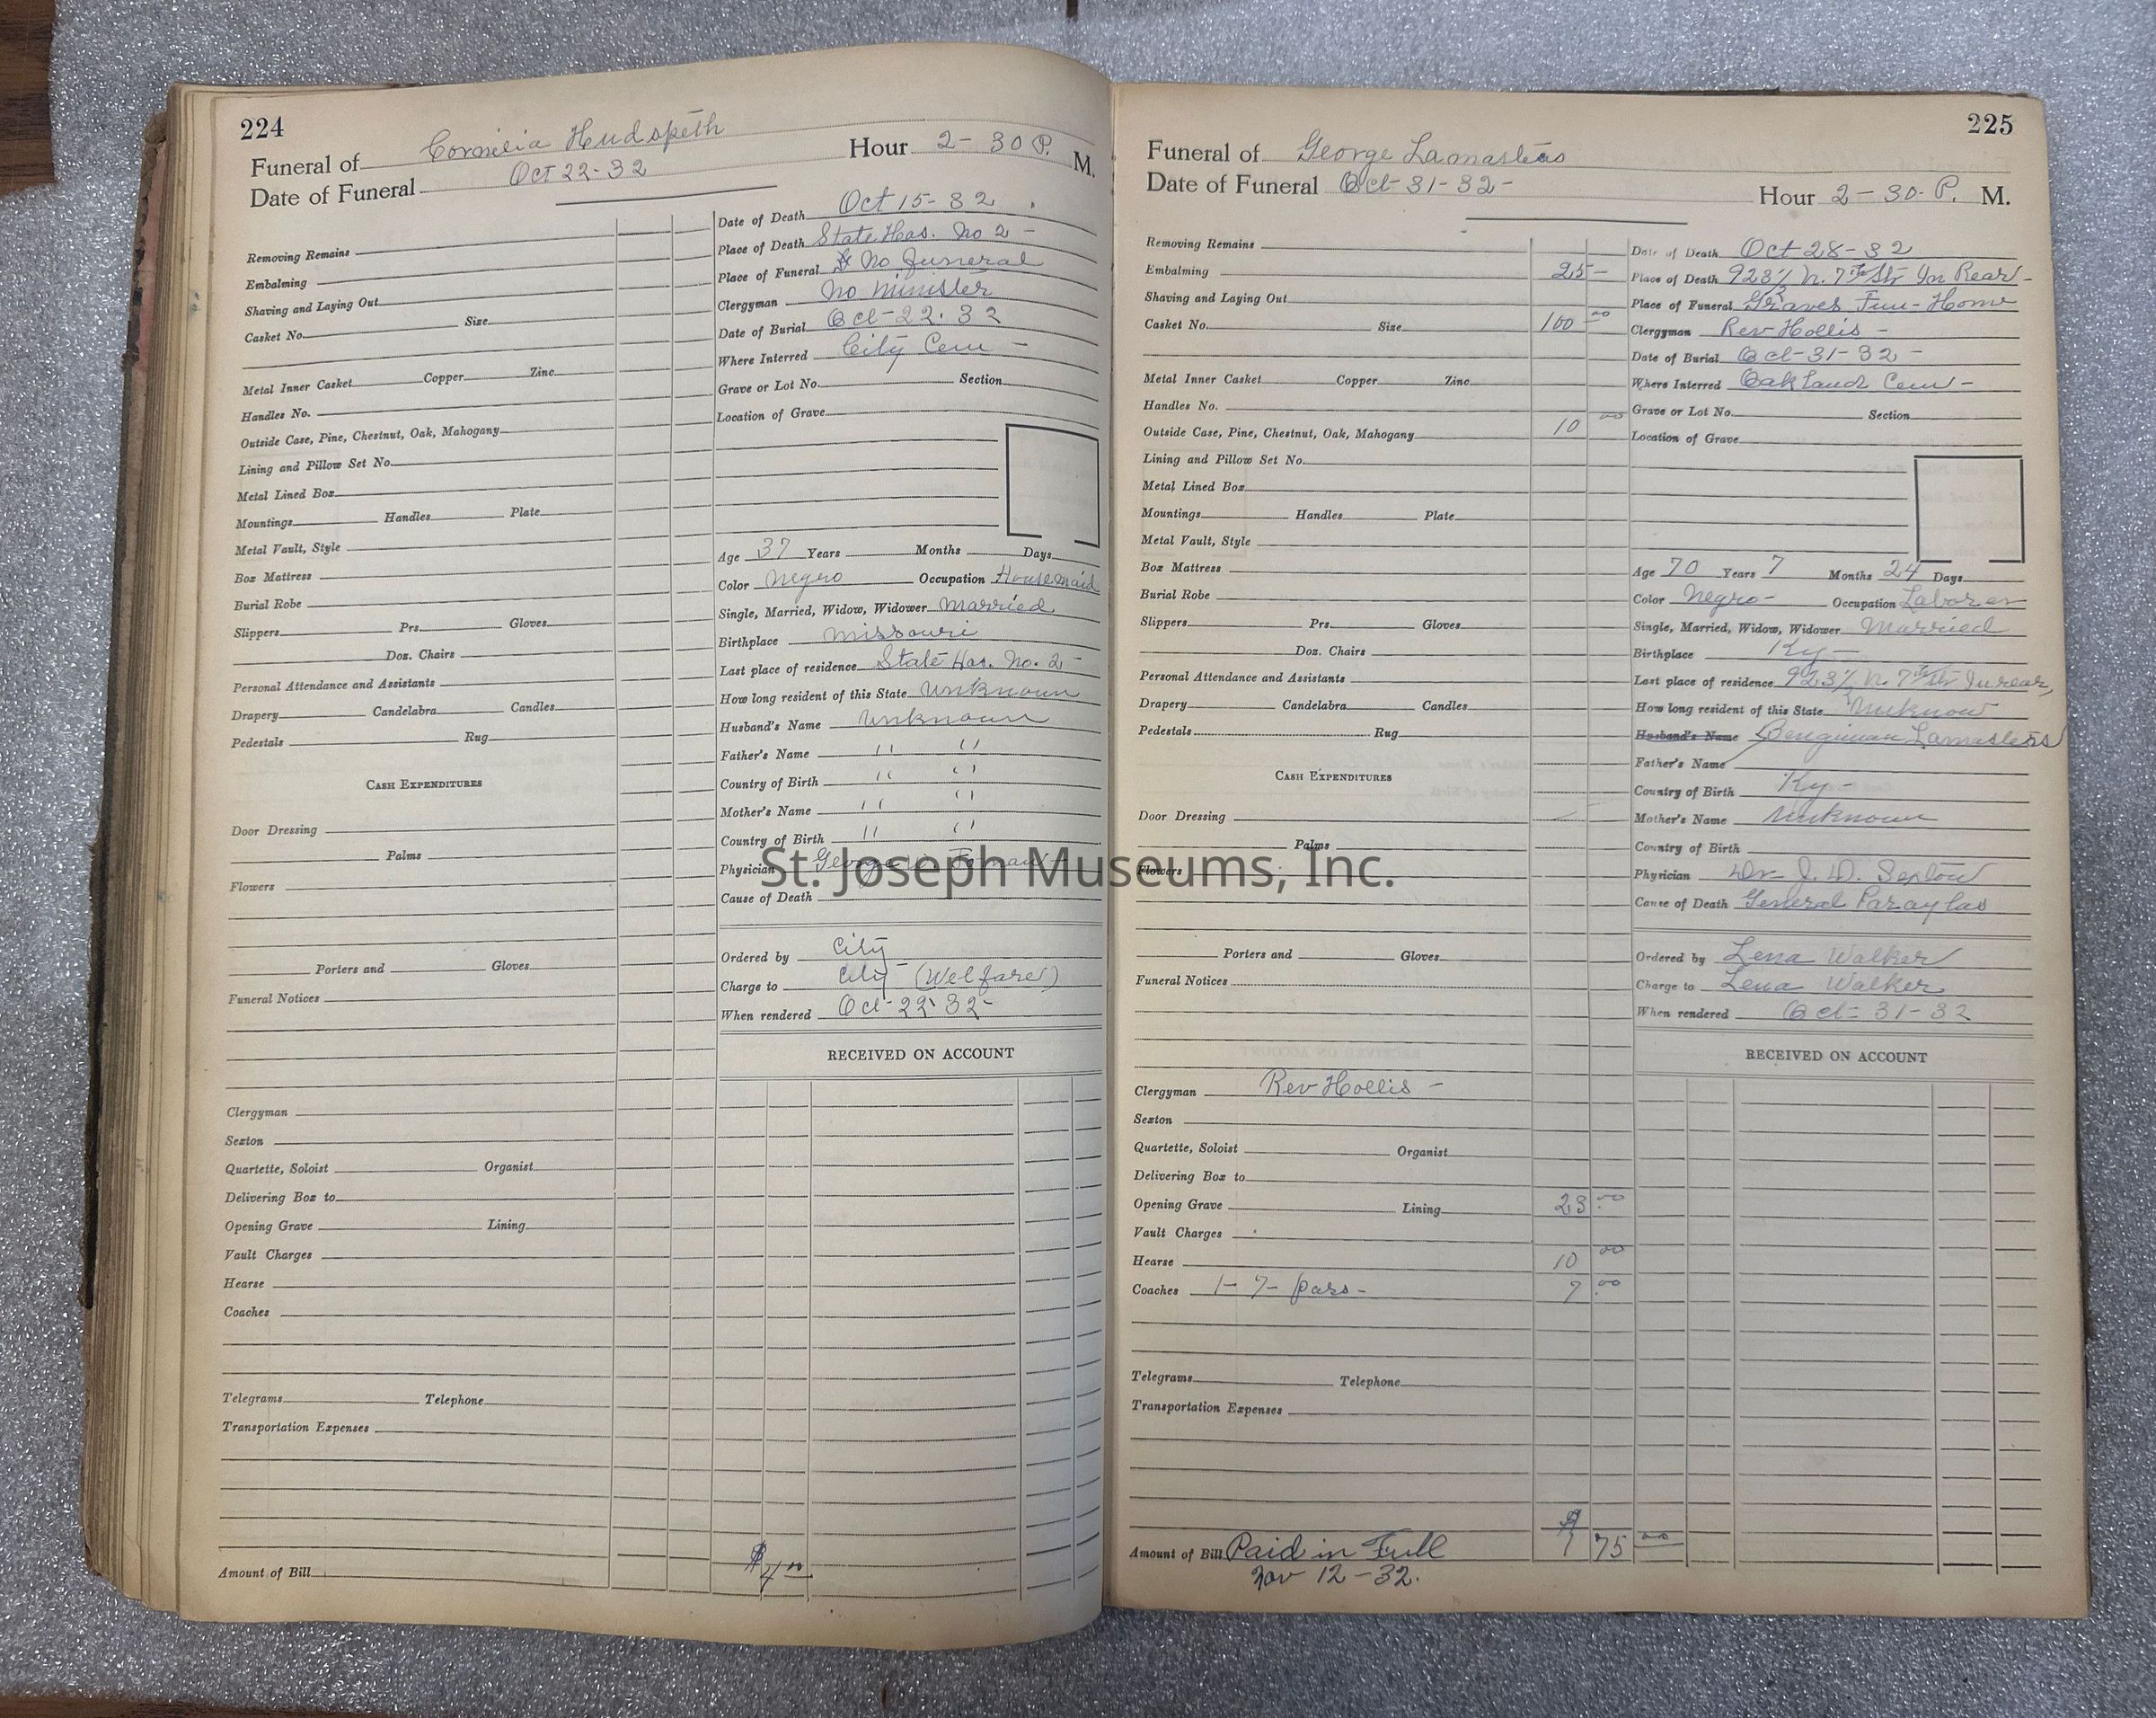 224
Funeral of Cornelia Hudspeth
Hour 2-30 P. M.
Date of Funeral Oct 22-32
Removing Remains
Embalming
Shaving and Laying Out
Casket No. Size
Metal Inner Casket Copper Zinc
Handles No.
Outside Case, Pine, Chestnut, Oak, Mahogany
Lining and Pillow Set No.
Metal Lined Box
Mountings Handles Plate
Metal Vault, Style
Box Mattress
Burial Robe
Slippers Prs. Gloves
Doz. Chairs
Personal Attendance and Assistants
Drapery Candelabra Candles
Pedestals Rug
CASH EXPENDITURES
Door Dressing
Palms
Flowers
Porters and Gloves
Funeral Notices
Clergyman
Sexton
Quartette, Soloist Organist
Delivering Box to
Opening Grave Lining
Vault Charges
Hearse
Coaches
Telegrams Telephone
Transportation Expenses
Amount of Bill
Date of Death Oct 15-32
Place of Death State Hos. No 2 -
Place of Funeral No Funeral
Clergyman No Minister
Date of Burial Oct-22-32
Where Interred City Cem -
Grave or Lot No. Section
Location of Grave
Age 37 Years Months Days
Color Negro Occupation Housemaid
Single, Married, Widow, Widower Married
Birthplace Missouri
Last place of residence State Hos. No. 2 -
How long resident of this State Unknown
Husband's Name Unknown
Father's Name " "
Country of Birth " "
Mother's Name " "
Country of Birth " "
Physician George
Cause of Death
Ordered by City
Charge to City (Welfare)
When rendered Oct-22-32-
RECEIVED ON ACCOUNT
225
Funeral of George Lamasters
Date of Funeral Oct-31-32-
Hour 2-30-P. M.
Removing Remains
Embalming 25-
Shaving and Laying Out
Casket No. Size 100 00
Metal Inner Casket Copper Zinc
Handles No.
Outside Case, Pine, Chestnut, Oak, Mahogany 10 00
Lining and Pillow Set No.
Metal Lined Box
Mountings Handles Plate
Metal Vault, Style
Box Mattress
Burial Robe
Slippers Prs. Gloves
Doz. Chairs
Personal Attendance and Assistants
Drapery Candelabra Candles
Pedestals Rug
CASH EXPENDITURES
Door Dressing
Palms
Flowers
Porters and Gloves
Funeral Notices
Clergyman Rev Hollis -
Sexton
Quartette, Soloist Organist
Delivering Box to
Opening Grave Lining 23 00
Vault Charges
Hearse 10 00
Coaches 1-7-pass- 7 00
Telegrams Telephone
Transportation Expenses
Amount of Bill Paid in Full $175 00
Nov 12-32.
Date of Death Oct 28-32
Place of Death 923½ N. 7th Str In Rear-
Place of Funeral Graves Fun-Home
Clergyman Rev Hollis -
Date of Burial Oct-31-32-
Where Interred Oakland Cem-
Grave or Lot No. Section
Location of Grave
Age 70 Years 7 Months 24 Days
Color Negro- Occupation Laborer
Single, Married, Widow, Widower Married
Birthplace Ky-
Last place of residence 923½ N. 7th Str In rear,
How long resident of this State Unknow
Husband's Name Benginian Lamasters
Father's Name
Country of Birth Ky-
Mother's Name Unknown
Country of Birth
Physician Dr- J. D. Sexton
Cause of Death General Paraylas
Ordered by Lena Walker
Charge to Lena Walker
When rendered Oct-31-32
RECEIVED ON ACCOUNT
St. Joseph Museums, Inc.